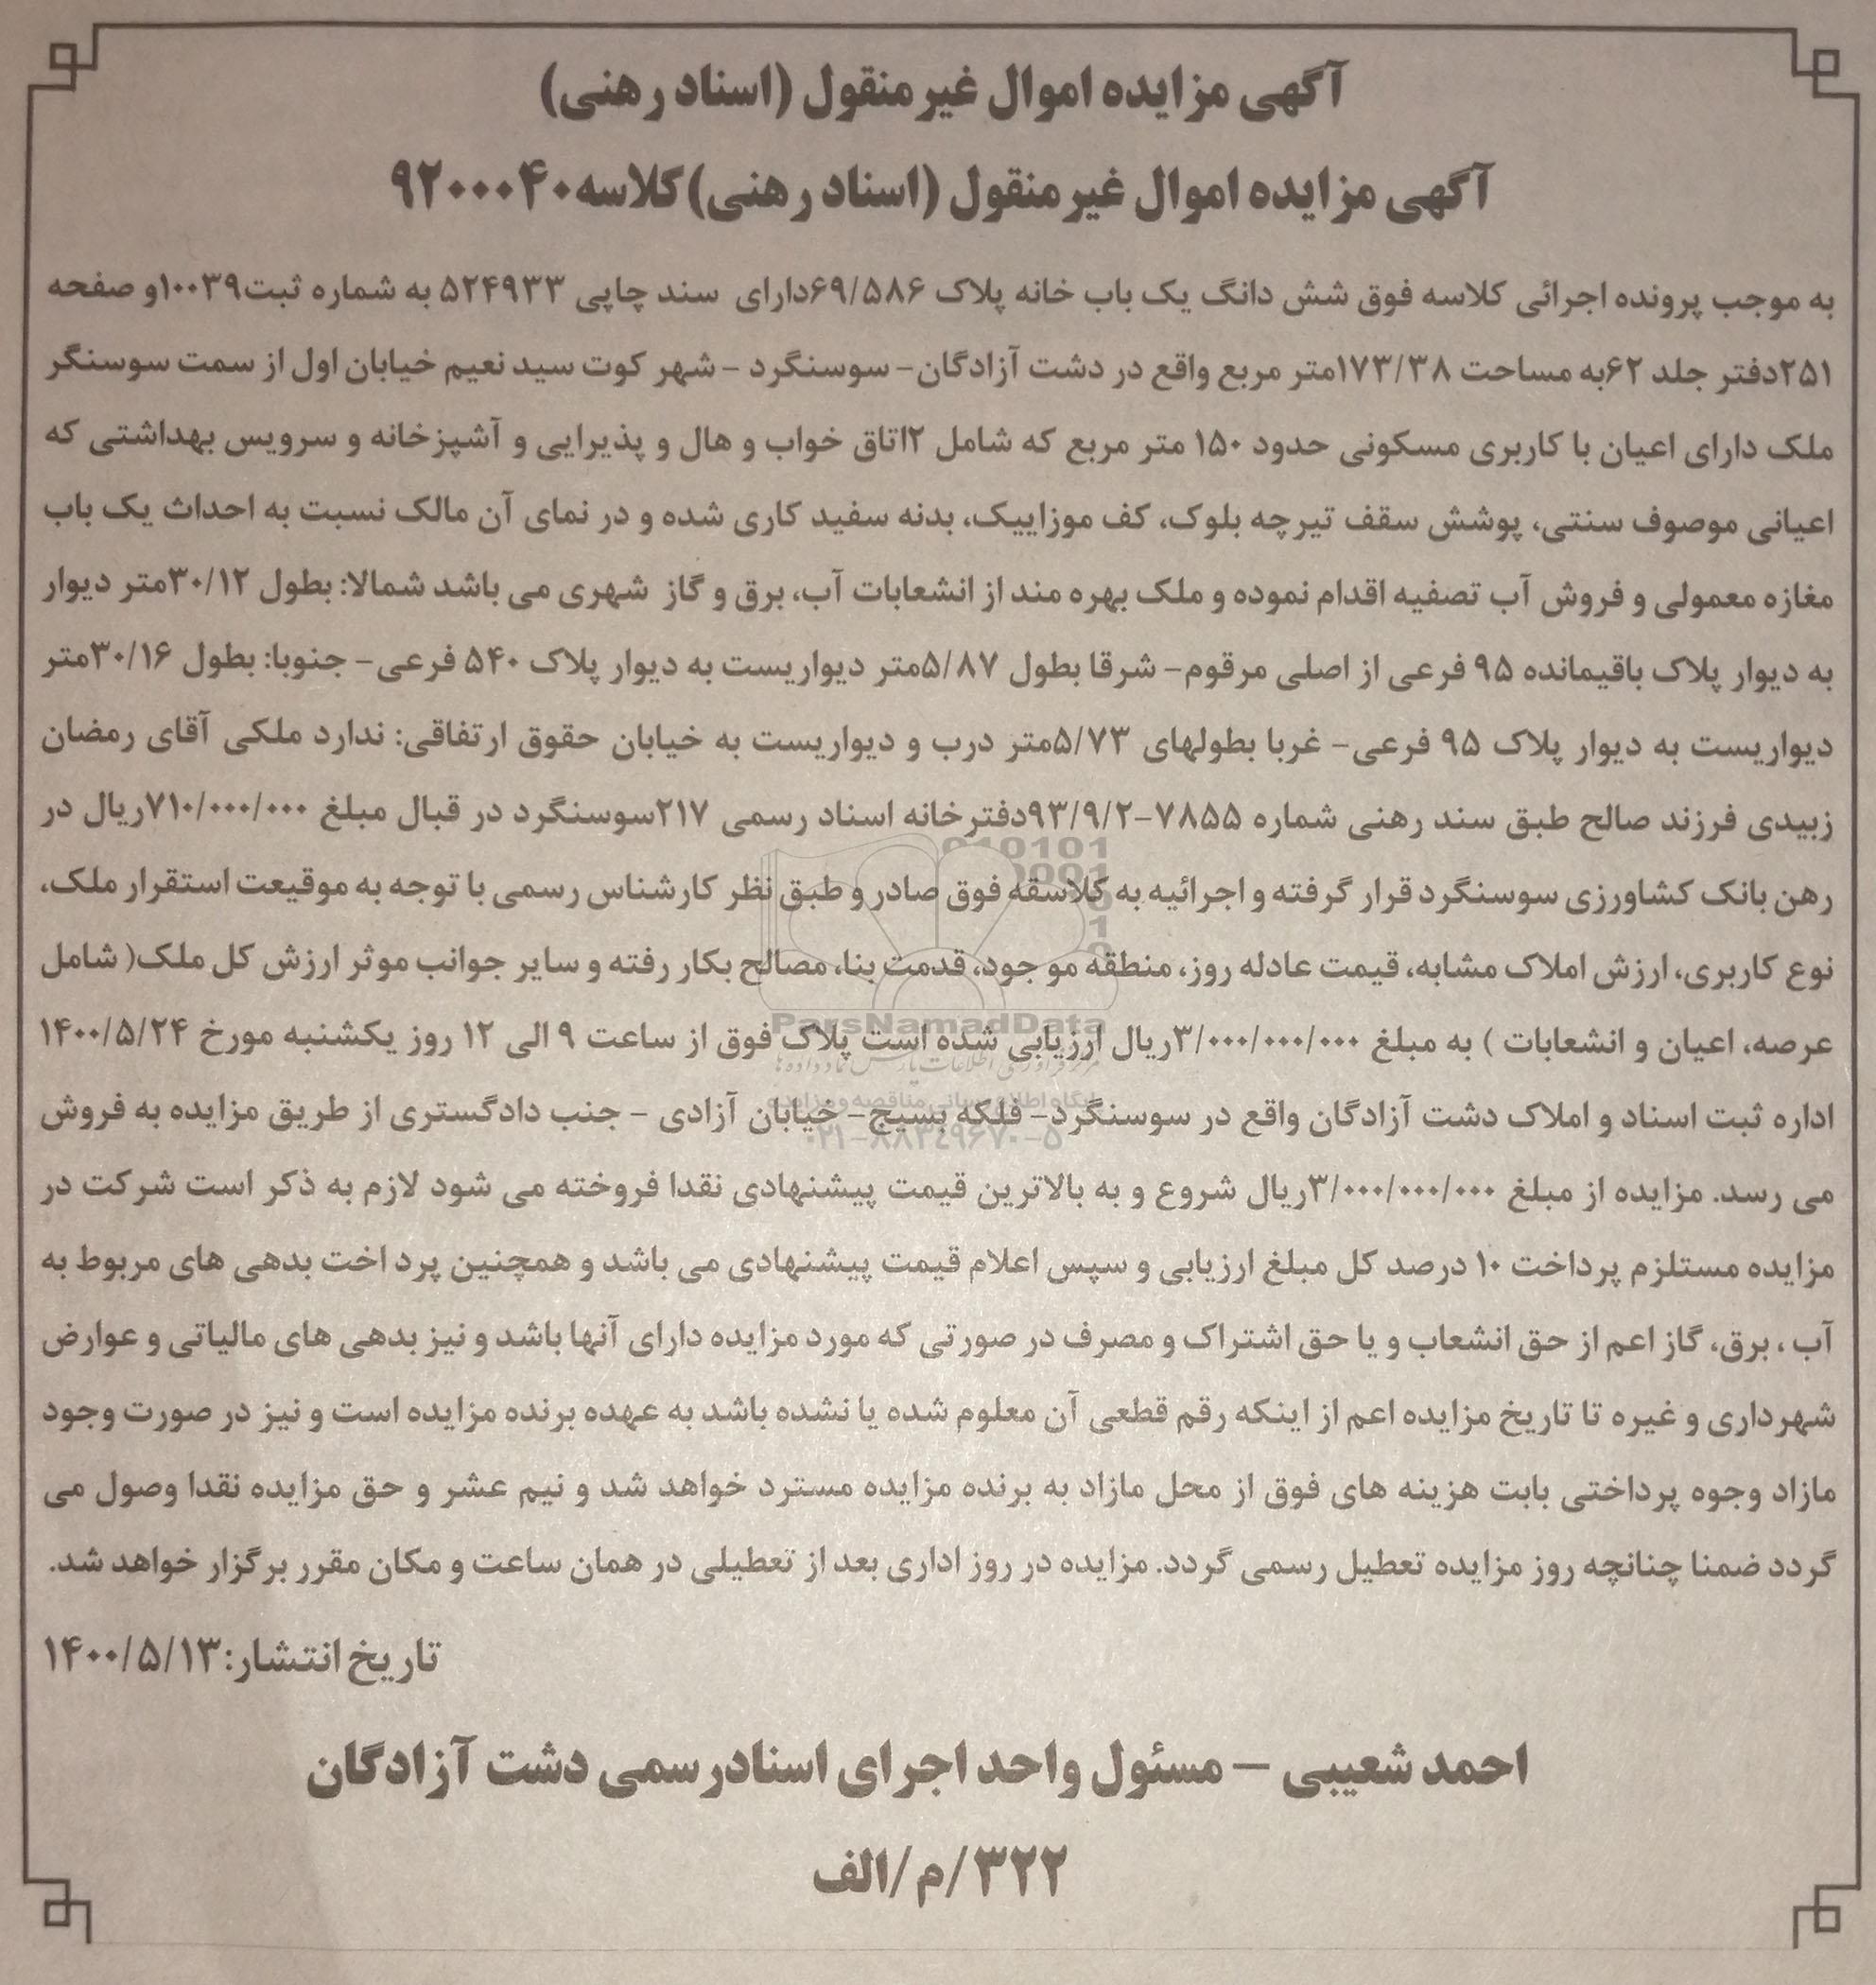 آگهی مزایده اموال غیر منقول (اسناد رهنی)
آگهی مزایده اموال غیر منقول (اسناد رهنی)کلاسه۹۲۰۰۰۴۰
به موجب پرونده اجرائی کلاسه فوق شش دانگ یک باب خانه پلاک ۶۹/۵۸۶دارای سند چاپی ۵۲۴۹۳۳ به شماره ثبت۱۰۰۳۹و صفحه
۲۵۱دفتر جلد ۶۲به مساحت ۱۷۳/۳۸متر مربع واقع در دشت آزادگان- سوسنگرد - شهر کوت سید نعیم خیابان اول از سمت سوسنگر
ملک دارای اعیان با کاربری مسکونی حدود ۱۵۰ متر مربع که شامل ۲اتاق خواب و هال و پذیرایی و آشپزخانه و سرویس بهداشتی که
اعیانی موصوف سنتی، پوشش سقف تیرچه بلوک، کف موزاییک، بدنه سفید کاری شده و در نمای آن مالک نسبت به احداث یک باب
مغازه معمولی و فروش آب تصفیه اقدام نموده و ملک بهره مند از انشعابات آب، برق و گاز شهری می باشد شمالا: بطول ۳۰/۱۲متر دیوار
به دیوار پلاک باقیمانده ۹۵ فرعی از اصلی مرقوم- شرقا بطول ۵/۸۷متر دیواریست به دیوار پلاک ۵۴۰ فرعی- جنوبا: بطول ۳۰/۱۶متر
دیواریست به دیوار پلاک ۹۵ فرعی- غربا بطولهای ۵/۷۳متر درب و دیواریست به خیابان حقوق ارتفاقی: ندارد ملکی آقای رمضان
زبیدی فرزند صالح طبق سند رهنی شماره ۷۸۵۵-۹۳/۹/۲دفترخانه اسناد رسمی ۲۱۷سوسنگرد در قبال مبلغ ۷۱۰/۰۰۰/۰۰۰ریال در
رهن بانک کشاورزی سوسنگرد قرار گرفته و اجرائیه به کلاسقه فوق صادر و طبق نظر کارشناس رسمی با توجه به موقیعت استقرار ملک،
نوع کاربری، ارزش املاک مشابه، قیمت عادله روز، منطقه مو جود، قدمت بنا، مصالح بکار رفته و سایر جوانب موثر ارزش کل ملک( شامل
عرصه، اعیان و انشعابات ) به مبلغ ۳/۰۰۰/۰۰۰/۰۰۰ریال ارزیابی شده است پلاک فوق از ساعت ۹ الی ۱۲ روز یکشنبه مورخ ۱۴۰۰/۵/۲۴
اداره ثبت اسناد و املاک دشت آزادگان واقع در سوسنگرد- فلکه بسیج- خیابان آزادی - جنب دادگستری از طریق مزایده به فروش
می رسد. مزایده از مبلغ ۳/۰۰۰/۰۰۰/۰۰۰ریال شروع و به بالاترین قیمت پیشنهادی نقدا فروخته می شود لازم به ذکر است شرکت در
مزایده مستلزم پرداخت ۱۰ درصد کل مبلغ ارزیابی و سپس اعلام قیمت پیشنهادی می باشد و همچنین پرد اخت بدهی های مربوط به
آب ، برق، گاز اعم از حق انشعاب و یا حق اشتراک و مصرف در صورتی که مورد مزایده دارای آنها باشد و نیز بدهی های مالیاتی و عوارض
شهرداری و غیره تا تاریخ مزایده اعم از اینکه رقم قطعی آن معلوم شده یا نشده باشد به عهده برنده مزایده است و نیز در صورت وجود
مازاد وجوه پرداختی بابت هزینه های فوق از محل مازاد به برنده مزایده مسترد خواهد شد و نیم عشر و حق مزایده نقدا وصول می
گردد ضمنا چنانچه روز مزایده تعطیل رسمی گردد. مزایده در روز اداری بعد از تعطیلی در همان ساعت و مکان مقرر برگزار خواهد شد.
تاریخ انتشار:۱۴۰۰/۵/۱۳
احمد شعیبی – مسئول واحد اجرای اسنادرسمی دشت آزادگان
۳۲۲/م/الف
ParsNamadData
۰۲۱-۸۸۳۴۹۶۷۰-۵